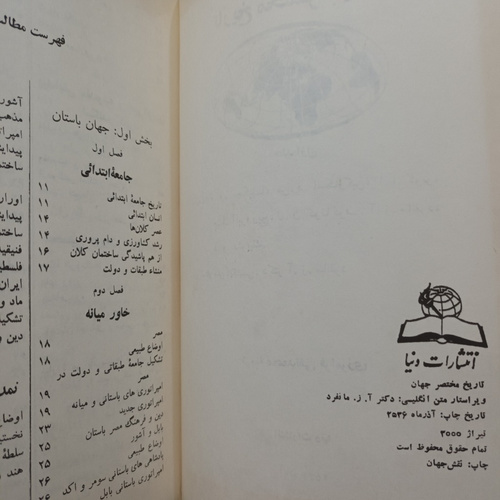 انتشارات دنیا
تاریخ مختصر جهان
ویراستار متن انگلیسی: دکتر آ. ز. مانفرد
تاریخ چاپ: آذرماه ۲۵۳۶
تیراژ ۳۰۰۰
تمام حقوق محفوظ است
چاپ: نقش‌جهان
فهرست مطالب
بخش اول: جهان باستان
فصل اول
جامعهٔ ابتدائی
تاریخ جامعهٔ ابتدائی ۱۱
انسان ابتدائی ۱۱
عصر کلان‌ها ۱۴
رشد کشاورزی و دام پروری ۱۴
از هم پاشیدگی ساختمان کلان ۱۶
منشاء طبقات و دولت ۱۷
فصل دوم
خاور میانه
مصر
اوضاع طبیعی ۱۸
تشکیل جامعهٔ طبقاتی و دولت در ۱۸
مصر
امپراتوری های باستانی و میانه ۱۹
امپراتوری جدید ۱۹
دین و فرهنگ مصر باستان ۲۳
بابل و آشور ۲۵
اوضاع طبیعی ۲۵
پادشاهی های باستانی سومر و اکد
امپراتوری باستانی بابل ۲۶
آشور
مذهب
پیدایش
ساختم
پیدایش
ساختم
فنیقیه
فلسطی
ایران
ماد و
تشکیل
دین و
اوضاع
نخستین
سلطهٔ
هند